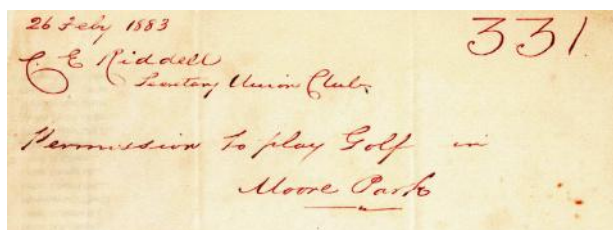 26 Feby 1883
331
C. E Riddell
Secretary Union Club
Permission to play Golf in
Moore Park